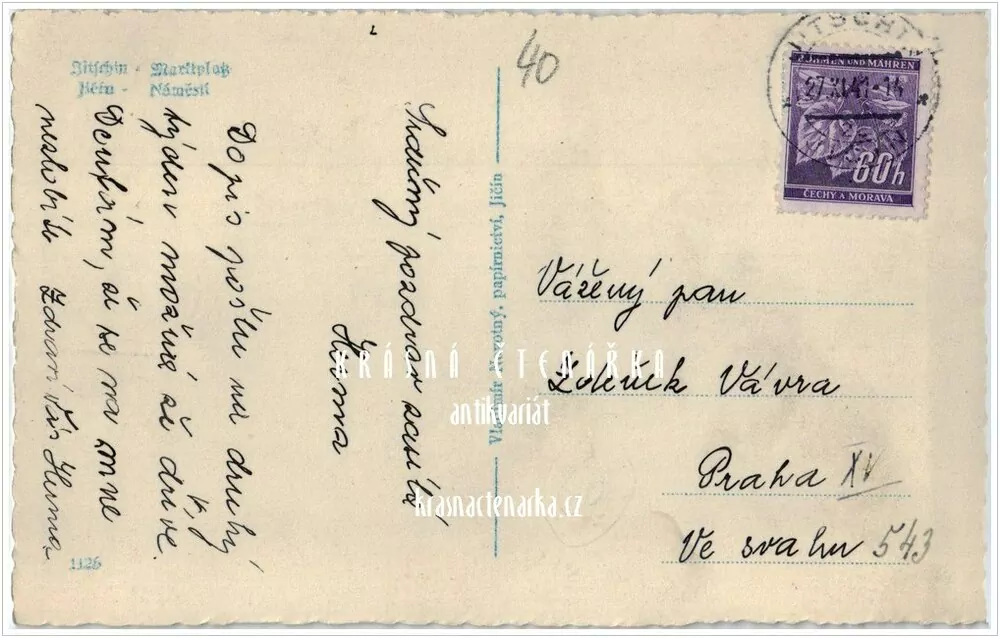 Jitschin - Marktplatz
Jičín - Náměstí
40
JITSCHIN
27.XI.41-14
BÖHMEN UND MÄHREN
60h
ČECHY A MORAVA
Srdečný pozdrav
Dopis pošlu na druhý
týden možná že dříve.
že se na mne
nezlobíte Zdraví Vás
Vladimír Novotný, papírnictví, Jičín
Vážený pan
Zdeněk Vávra
Praha XV
Ve svahu 543
1126
KRÁSNÁ ČTENÁŘKA
antikvariát
krasnactenarka.cz